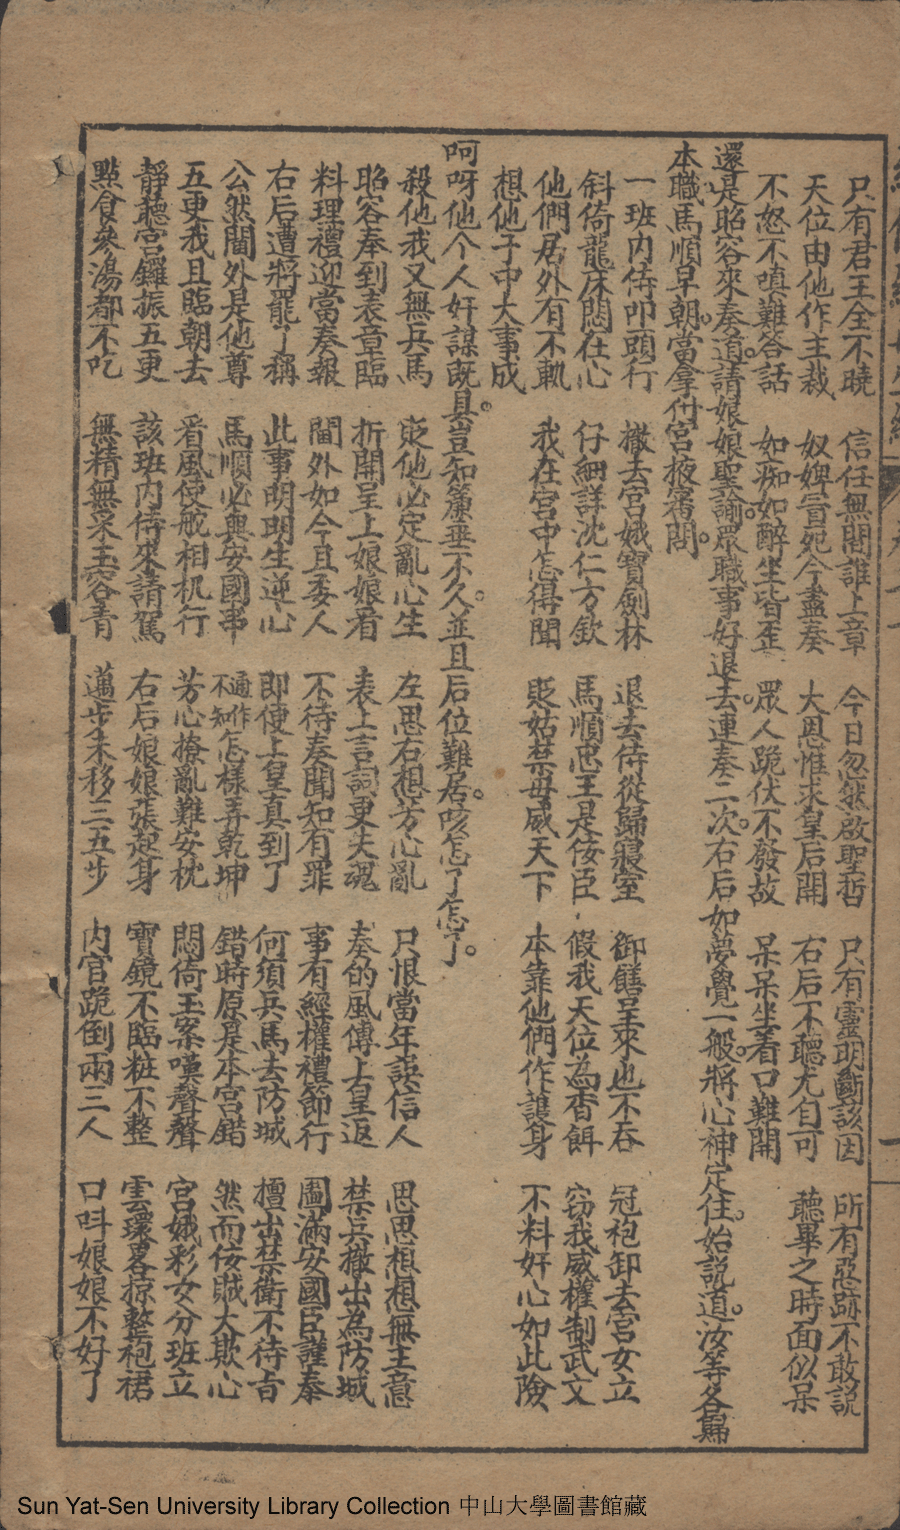 只有君王全不曉 信任無閒誰上章 今日忽然啟聖哲 只有靈明斷該因 所有惡跡不敢説
天位由他作主裁 奴婢冒死今盡奏 大恩惟求皇后開 右后不聽尤自可 聽畢之時面似呆
不怒不嗔難答話 如痴如醉坐皆歪 眾人跪伏不發故 呆呆坐着口難開
還是昭容來奏道。請娘娘聖諭。眾職事好退去。連奏二次。右后如夢覺一般。將心神定住。始説道。汝等各歸
本職。馬順早朝。當拿付宮掖審問。
一班内侍叩頭行 撤去宮娥寶劍林 退去侍從歸寢室 御饍呈來也不吞 冠袍卸去宮女立
斜倚龍床悶在心 仔細詳沈仁方欽 馬順忠王是佞臣 假我天位為香餌 窃我威權制武文
他們居外有不軌 我在宮中怎得聞 貶姑禁母威天下 本靠他們作護身 不料奸心如此險
想他子中大事成
呵呀他个人奸謀既具。豈知簾垂不久。並且后位難居。咳怎了怎了。
殺他我又無兵馬 貶他必定亂心生 左思右想芳心亂 只恨當年誤信人 思思想想無主意
昭容奉到表章臨 折開呈上娘娘看 表上言詞更失魂 奏的風傳上皇返 禁兵撤出為防城
料理禮迎當奏報 閫外如今且委人 不待奏聞知有罪 事有經權禮節行 圖滿安國臣謹奉
右后遭將罷了稱 此事明明生逆心 即使上皇真到了 何須兵馬去防城 擅出禁衛不待旨
公然閫外是他尊 馬順必與安國串 不知通作怎樣弄乾坤 錯時原是本宮錯 然而佞賊大欺心
五更我且臨朝去 看風使舵相机行 芳心撩亂難安枕 悶倚玉案嘆聲聲 宮娥彩女分班立
靜聽宮鑼振五更 該班内侍來請駕 右后娘娘張起身 寶鏡不臨粧不整 雲環畧掠整袍裙
點食參湯都不吃 無精無采玉容青 邁步未移三五步 内官跪倒兩三人 口呌娘娘不好了
Sun Yat-Sen University Library Collection 中山大學圖書館藏